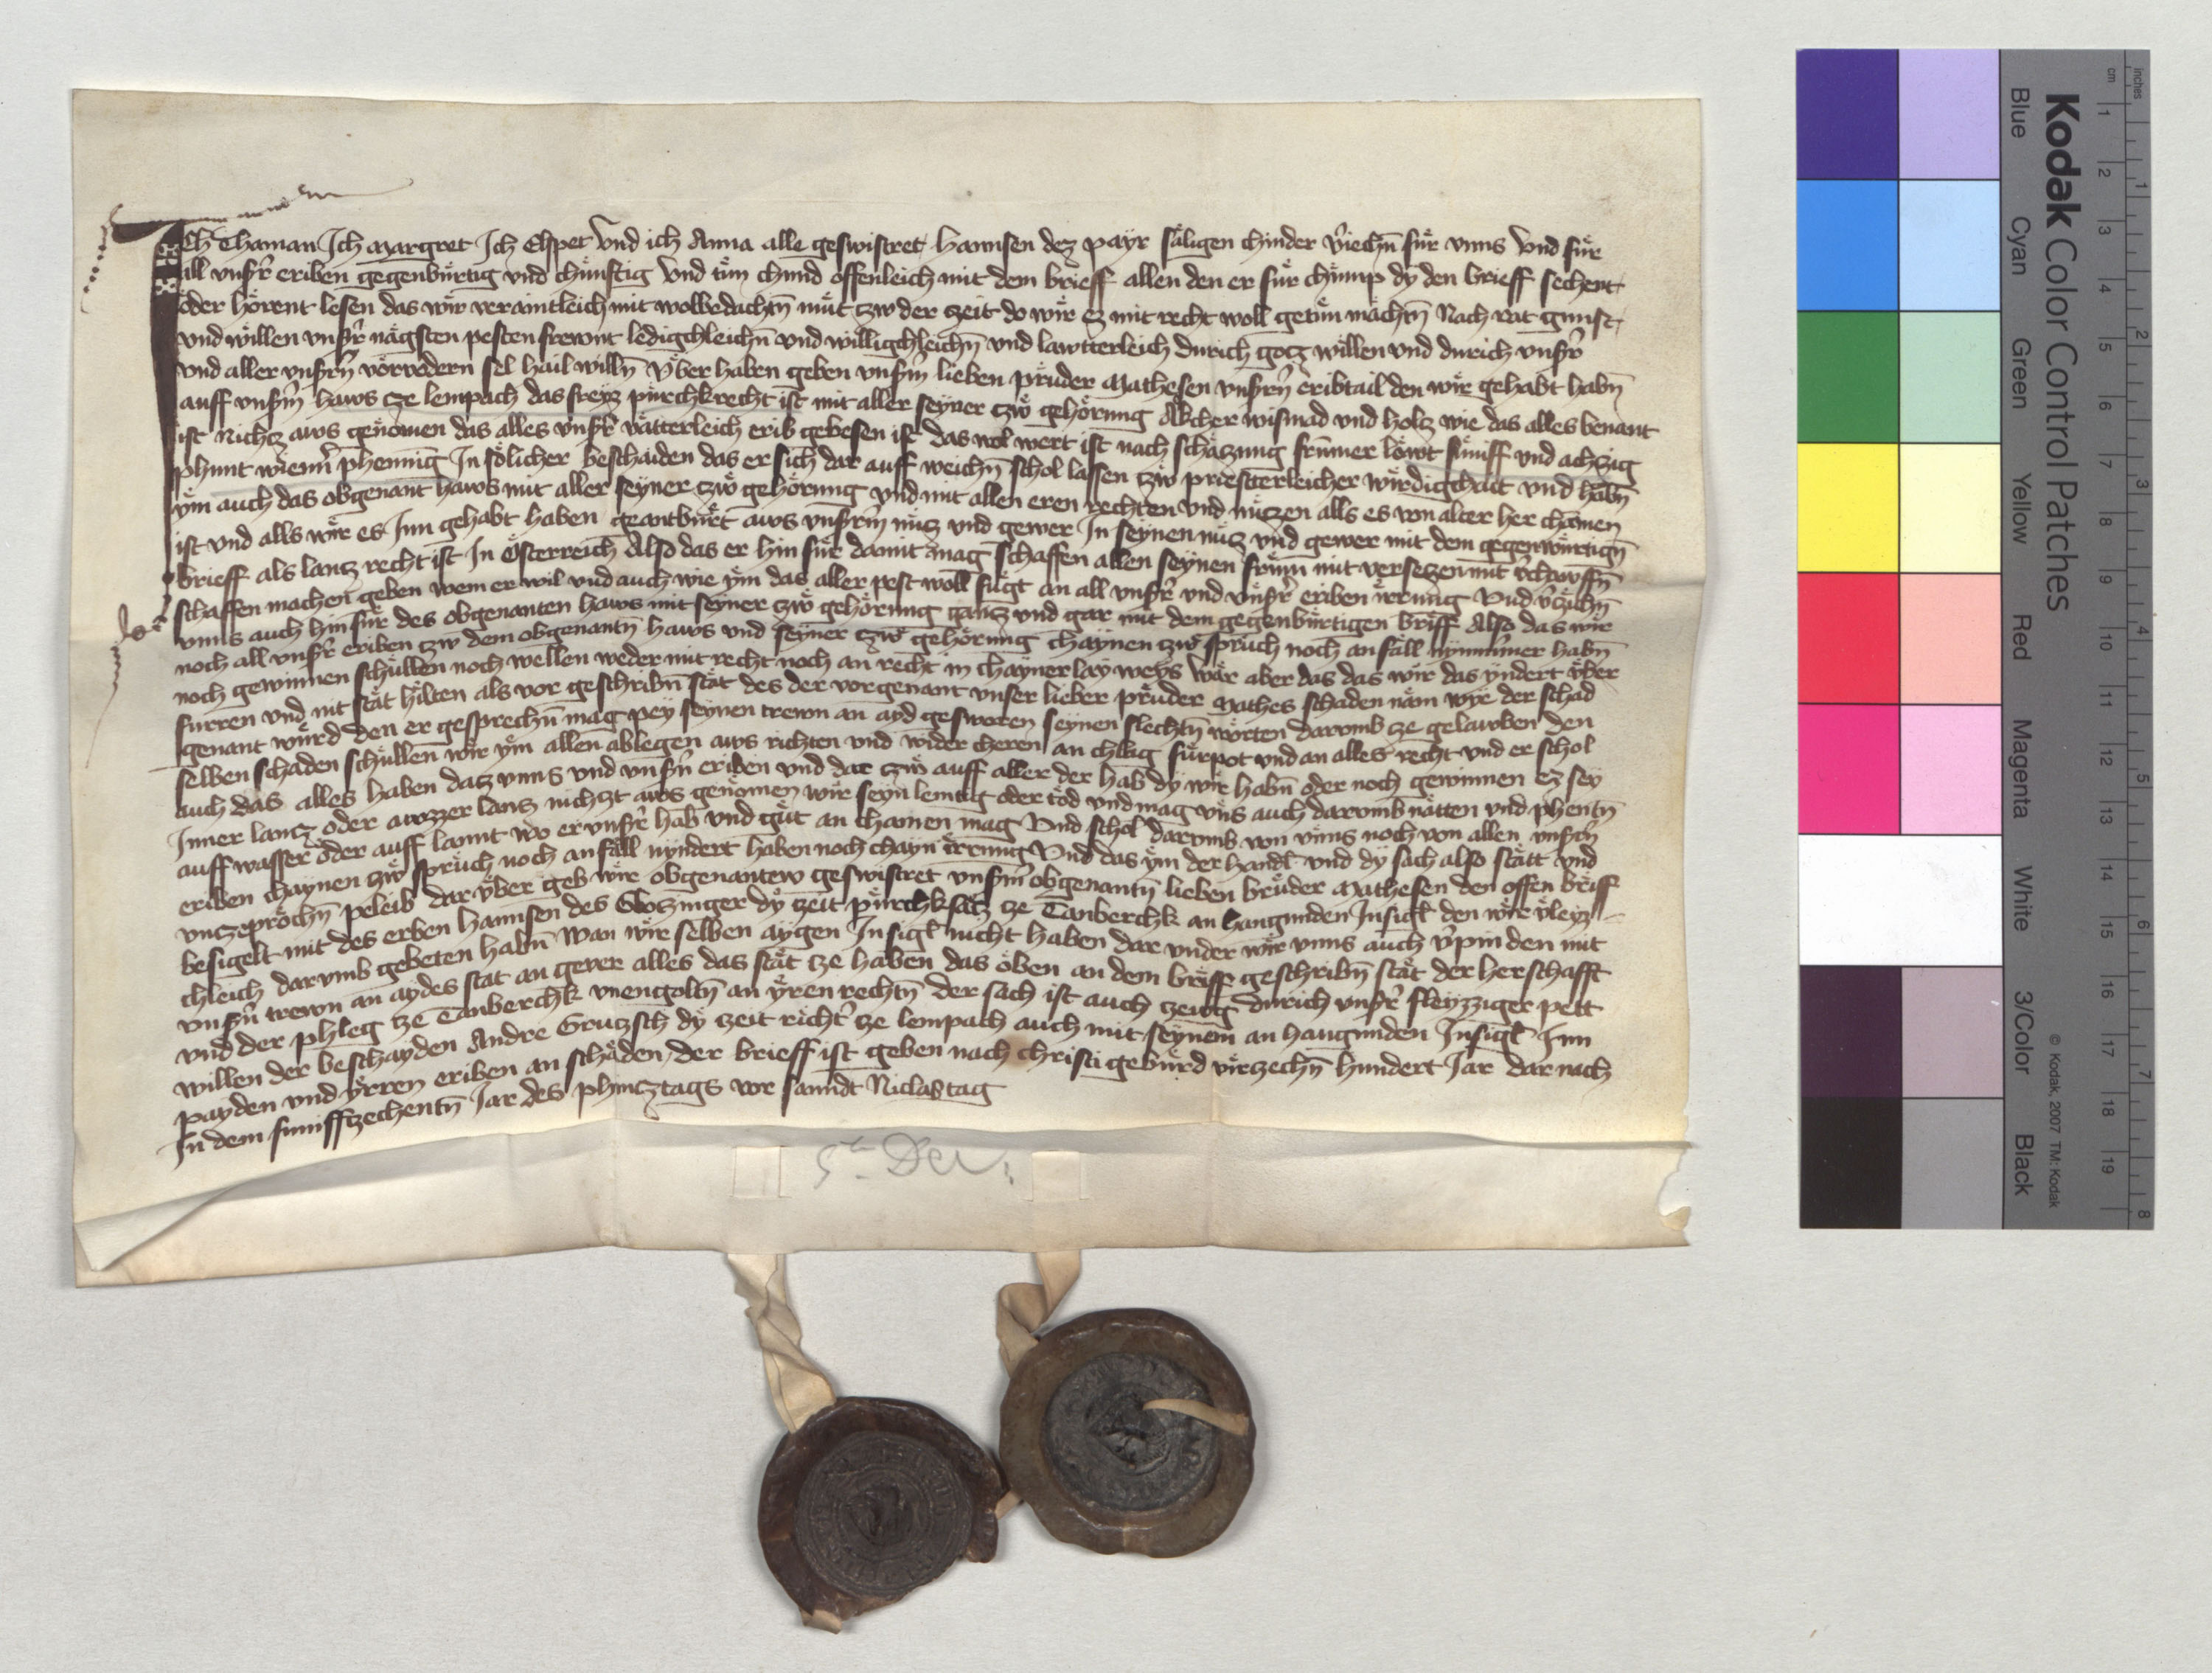 Ich Thaman Ich Margret Ich Elspet Vnd ich Anna alle geswistret hannsen dez payr säligen chinder v̂iechn̄ für vnns Vnd für
all vnsr̂ eriben gegenbürtig vnd chünftig Vnd tün chund offenleich mit dem brieff allen den er für chümp dy den brieff sechent
oder hörent lesen das wir veraintleich mit wolbedachtn̄ müt zw der zeit do wir ez mit recht woll getün mächtn̄ Nach rat gunst
vnd willen vnsr̂ nägsten pesten frewnt ledigchleichn̄ vnd willigchleichn̄ vnd lawtterleich durich gotz willen vnd durich vnsr̂
vnd aller vnsrn̂ vorvodern sel hail willn̄ Vber haben geben vnsm̂ lieben prüder Mathesen vnsrn̂ eribtail den wir gehabt habn̄
auff vnsm̂ haws ze lempach das freyz pürchkrecht ist mit aller seyner czw gehörung Akcher wismad vnd holtz wie das alles benant
ist Nichtz aws genomen das alles vnsr̂ vätterleich erib gebesen ist das wol wert ist nach schatzung frumer löwt fümff vnd achzig
phunt wienn̂ phennig In sölicher beschaiden das er sich dar auff weichn̄ schol lassen zw priestterleicher wirdigchait vnd habn̄
ym auch das obgenant haws mit aller seyner zw gehörung vnd mit allen eren rechten vnd nützen alls es von alter her chömen
ist vnd alls wir es Inn gehabt haben geantbürt aws vnsrm̂ nütz vnd gewer In seynen nutz vnd gewer mit dem gegenwürtign̄
brieff als lantz recht ist In Österreich Also das er hin für damit mag schaffen allen seynen frum̄ mit versetzen mit v̂chawffn̄
schaffen machen geben wem er wil vnd auch wie ym das aller pest woll fügt an all vnsr̂ vnd vnsr̂ eriben irrung Vnd v̂czichn̄
vnns auch hin für des obgenanten haws mit seyner zw gehörung gantz vnd gar mit dem gegenbürtigen briff Also das wir
noch all vnsr̂ eriben zw dem obgenantn̄ haws vnd seyner czw gehörung chaynen zw sprüch noch anfäll nymmer habn̄
noch gewinnen schüllen noch wellen weder mit recht noch an recht in chayner lay weys wär aber das das wir das yndert vber
fürren vnd nit stät hilten als vor geschribn̄ stät des der vorgenant vnser lieber prüder Mathes schaden näm wye der schad
genant würd den er gesprechn̄ mag pey seynen trewn an ayd gesworen seynen slechtn̄ worten darvmb ze gelawben den
selben schaden schüllen wir ym allen ablegen aws richten vnd wider cheren an chlag fürpot vnd an alles recht vnd er schol
auch das alles haben datz vnns vnd vnsrn̂ eriben vnd dar zw auff aller der hab dy wir habn̄ oder noch gewinnen ez sey
Inner lantz oder awzzer lantz nichtzt aws genomen wir seyn lemtig oder töd vnd mag vns auch darvmb nötten vnd phentn̄
auff wasser oder auff lannt wo er vnsr̂ hab vnd güt an chämen mag Vnd schol darvmb von vnns noch von allen vnsrn̂
eriben chaynen zw sprüch noch anfäll nyndert haben noch chayn irrung Vnd das ym der handl vnd dy sach also stätt vnd
vnzeprochn̄ peleib dar vber geb wir obgenantew geswistret vnsm̂ obgenantn̄ lieben brüder Mathesen den offen briff
besigelt mit des erben hannsen des Glotzniger dy zeit pürchksatz ze Tanberchk an hangunden Insigl den wir vleyz
chleich darvmb gebeten habn̄ wan wir selben aygen Insigl nicht haben dar vnder wir vnns auch v̂pinden mit
vnsrn̂ trewn an aydes stat an gever alles das stät ze haben das oben an dem briff geschribn̄ stät der herschafft
vnd der phleg ze Tanberchk vnengoltn̄ an yren rechtn̄ der sach ist auch zewg durich vnsr̂ fleyzziger pett
willen der beschayden Andre Grutzsch dy zeit richt̂ ze lempach auch mit seynem an hangunden Insigl Inn
payden vnd yrren eriben an schäden der brieff ist geben nach christi gebürd virzechn̄ hundert Jar dar nach
In dem fumffzechentn̄ Jar des phintztags vor sanndt Niclastag
5t. Dec.
Kodak Color Control Patches
Blue Cyan Green Yellow Red Magenta White 3/Color Black
© Kodak, 2007 TM: Kodak
cm 1 2 3 4 5 6 7 8 9 10 11 12 13 14 15 16 17 18 19
inches 1 2 3 4 5 6 7 8